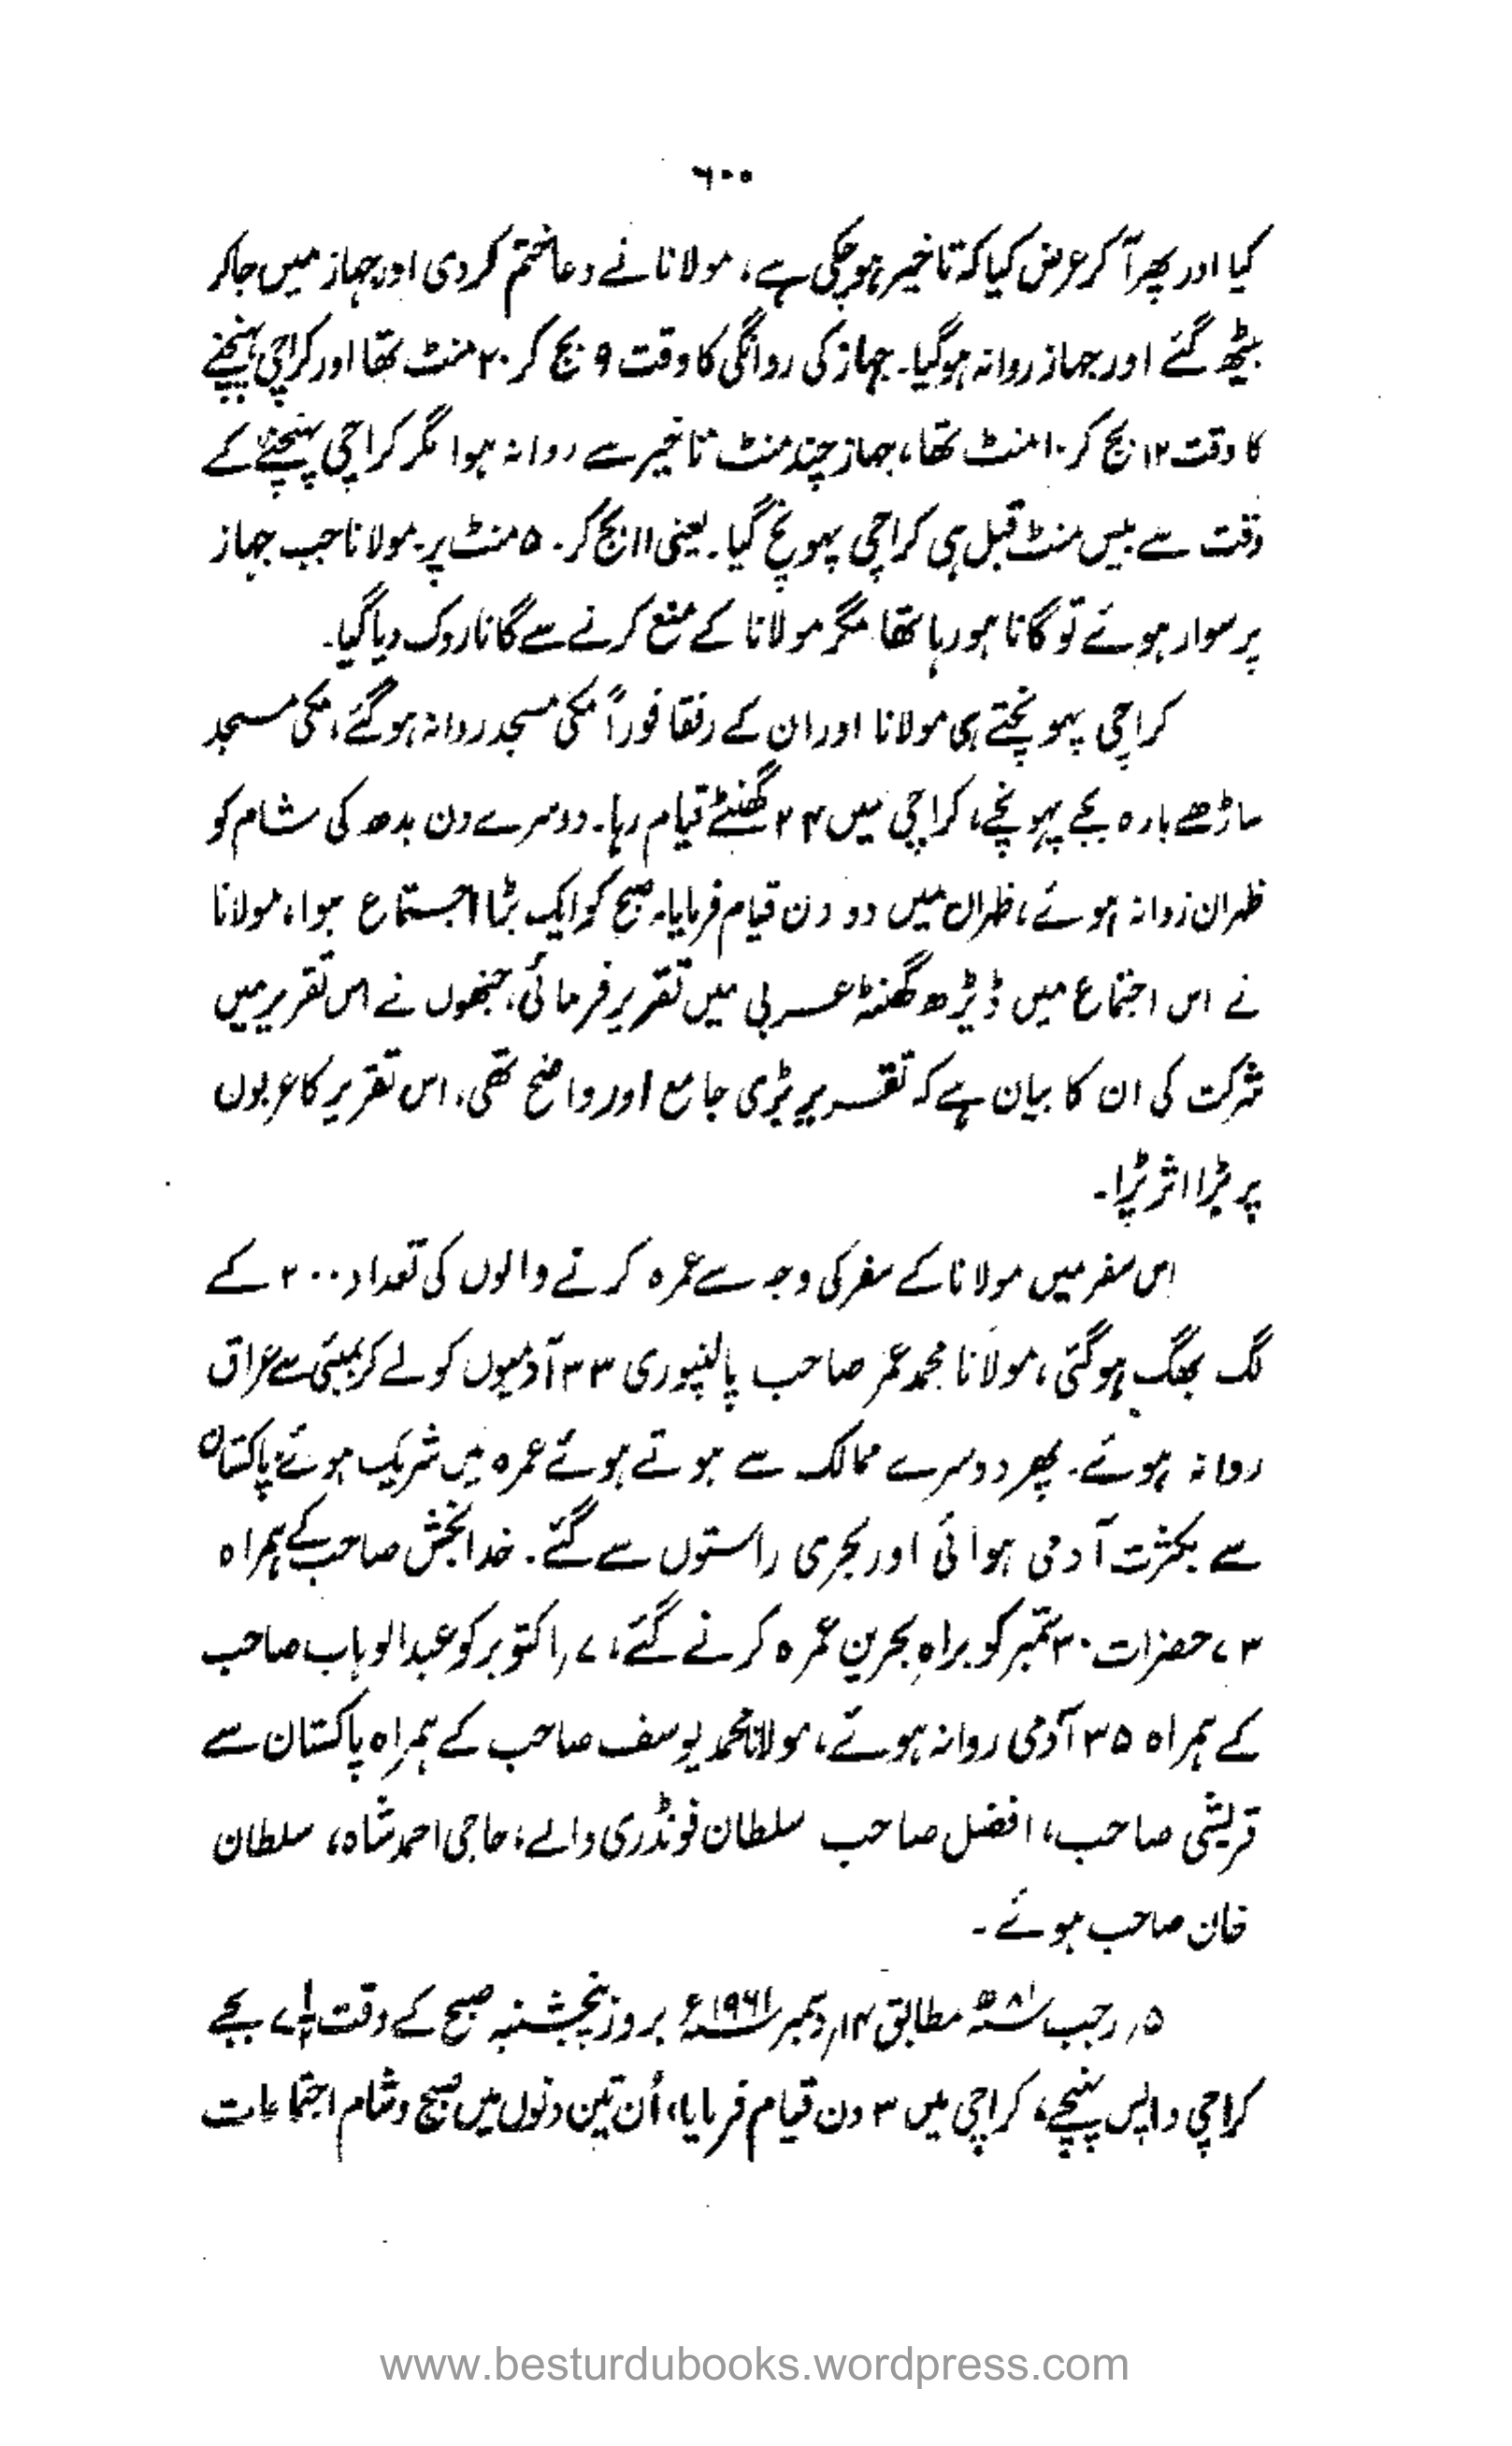 ۶۰۰
کیا اور پھر آ کر عرض کیا کہ تاخیر ہو چکی ہے، مولانا نے دعا ختم کر دی اور جہاز میں جا کر
بیٹھ گئے اور جہاز روانہ ہو گیا۔ جہاز کی روانگی کا وقت ۹ بج کر ۲۰ منٹ تھا اور کراچی پہنچنے
کا وقت ۱۲ بج کر ۱۰ منٹ تھا، جہاز چند منٹ تاخیر سے روانہ ہوا مگر کراچی پہنچنے کے
وقت سے بیس منٹ قبل ہی کراچی پہونچ گیا۔ یعنی ۱۱ بج کر ۵۰ منٹ پر۔ مولانا جب جہاز
پر سوار ہوئے تو گانا ہو رہا تھا مگر مولانا کے منع کرنے سے گانا روک دیا گیا۔
کراچی پہونچتے ہی مولانا اور ان کے رفقا فوراً مکی مسجد روانہ ہو گئے، مکی مسجد
ساڑھے بارہ بجے پہونچے، کراچی میں ۲۴ گھنٹے قیام رہا۔ دوسرے دن بدھ کی شام کو
ظہران روانہ ہوئے، ظہران میں دو دن قیام فرمایا، صبح کو ایک بڑا اجتماع ہوا، مولانا
نے اس اجتماع میں ڈیڑھ گھنٹہ عربی میں تقریر فرمائی، جنھوں نے اس تقریر میں
شرکت کی ان کا بیان ہے کہ تقریر بڑی جامع اور واضح تھی، اس تقریر کا عربوں
پر بڑا اثر پڑا۔
اس سفر میں مولانا کے سفر کی وجہ سے عمرہ کرنے والوں کی تعداد ۲۰۰ کے
لگ بھگ ہو گئی، مولانا محمد عمر صاحب پالنپوری ۳۳ آدمیوں کو لے کر بمبئی سے عراق
روانہ ہوئے۔ پھر دوسرے ممالک سے ہوتے ہوئے عمرہ میں شریک ہوئے پاکستان
سے بکثرت آدمی ہوائی اور بحری راستوں سے گئے۔ خدا بخش صاحب کے ہمراہ
۷۳ حضرات ۳۰ ستمبر کو براہِ بحرین عمرہ کرنے گئے، ۷ر اکتوبر کو عبدالوہاب صاحب
کے ہمراہ ۳۵ آدمی روانہ ہوئے، مولانا محمد یوسف صاحب کے ہمراہ پاکستان سے
قریشی صاحب، افضل صاحب سلطان فونڈری والے، حاجی احمد شاہ، سلطان
خان صاحب ہوئے۔
۵ر رجب ۸۱ھ مطابق ۱۴ر دسمبر ۱۹۶۱ء بروز پنجشنبہ صبح کے وقت بجے
کراچی واپس پہنچے، کراچی میں ۳ دن قیام فرمایا، اُن تین دنوں میں صبح و شام اجتماعات
www.besturdubooks.wordpress.com